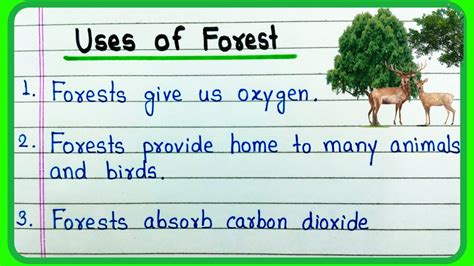 Uses of Forest
1. Forests give us oxygen.
2. Forests provide home to many animals
and birds.
3. Forests absorb carbon dioxide